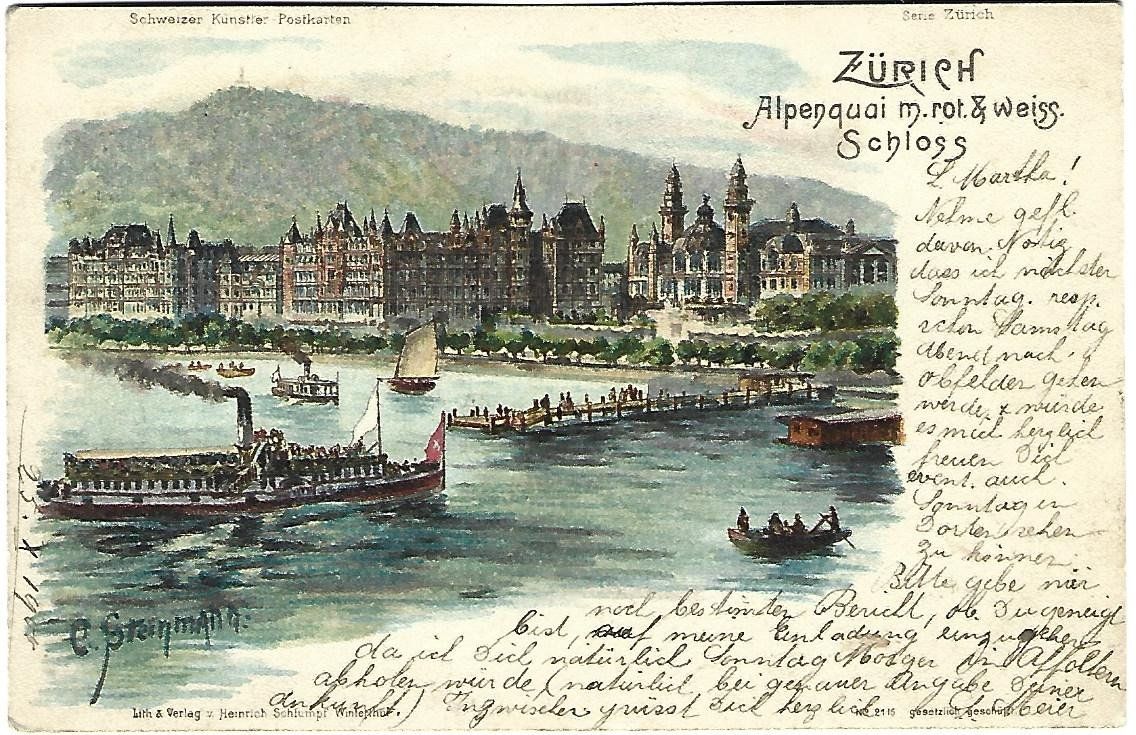 Schweizer Künstler-Postkarten
Serie Zürich
ZÜRICH
Alpenquai m. rot. & weiss.
Schloss
L. Martha!
Nehme gefl.
davon Notiz
dass ich nächster
Sonntag. resp.
schon Samstag
Abend nach
Obfelden gehen
werde, & würde
es mich herzlich
freuen Dich
event. auch.
Sonntag in
Dorten sehen
zu können.
Bitte gebe mir
noch bestimten Bericht, ob Du geneigt
bist, auf meine Einladung einzugehen
da ich Dich natürlich Sonntag Morgen in Affoltern
abholen würde (natürlich bei genauer Angabe Deiner
Ankunft.) Inzwischen grüsst Dich herzlich Meier
25. X
C. Steinmann.
Lith & Verlag v. Heinrich Schlumpf Winterthur
No 2115 gesetzlich geschützt